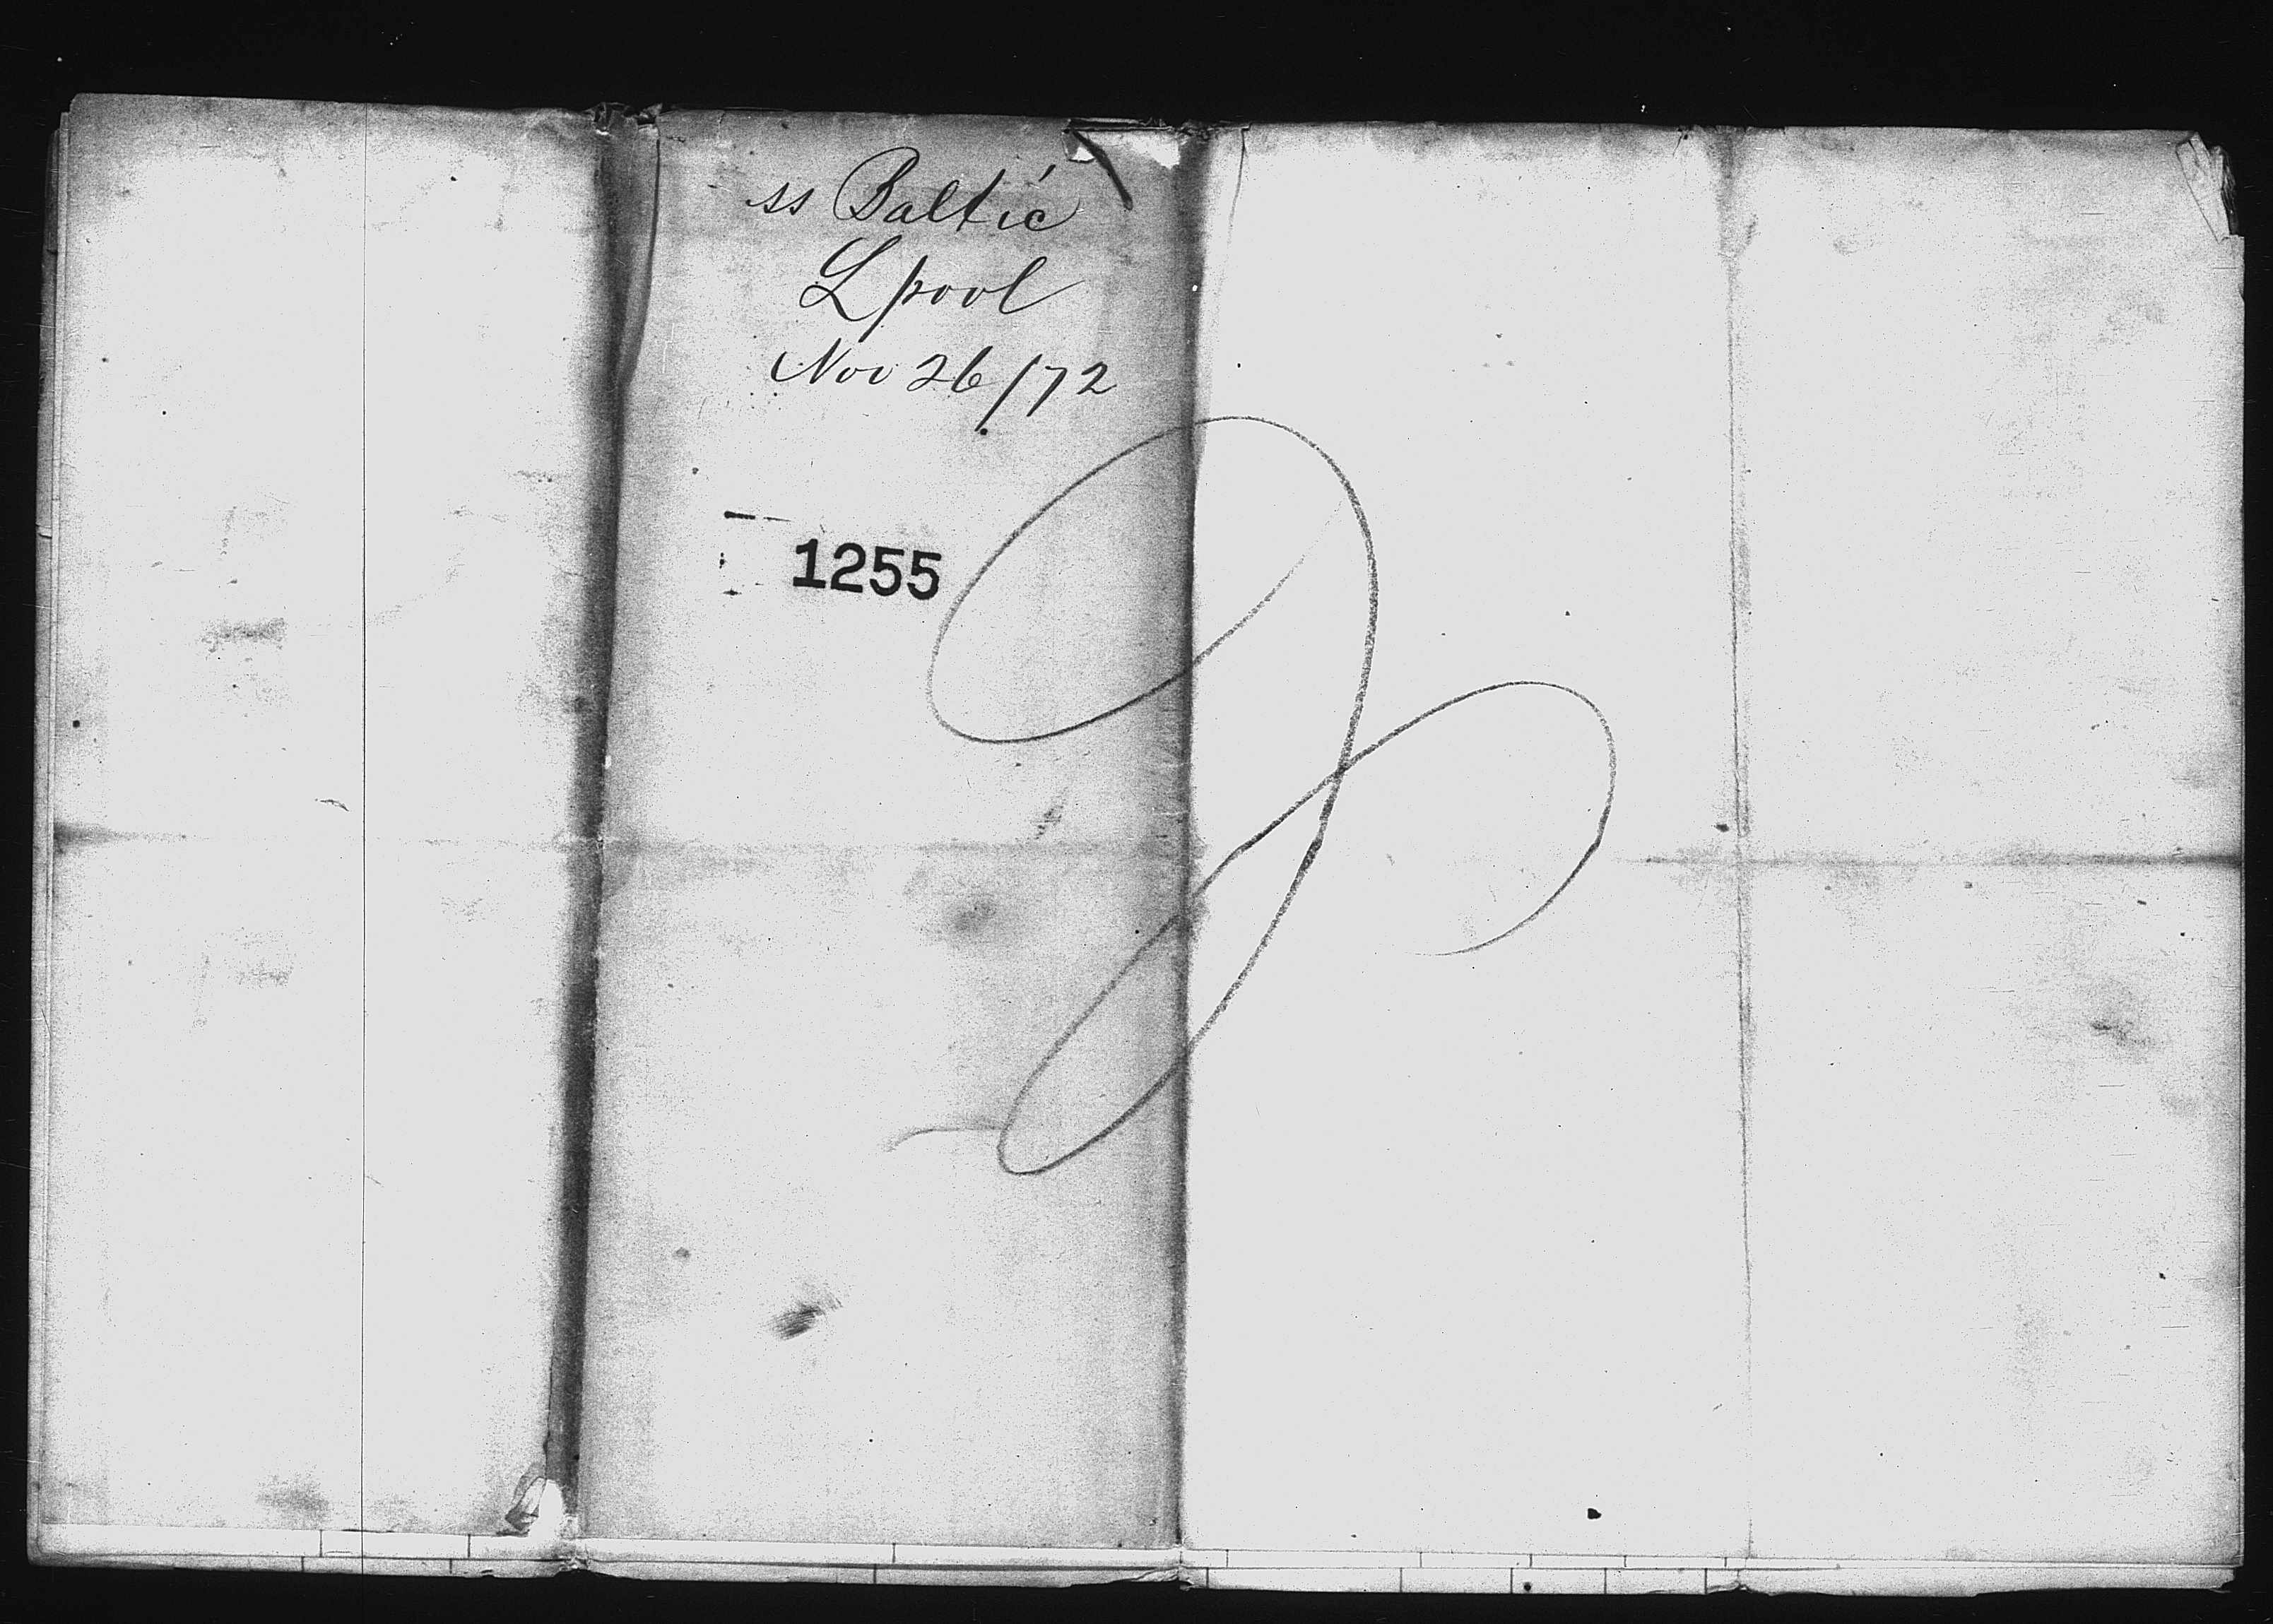 ss Baltic
Lpool
Nov 26/72
1255